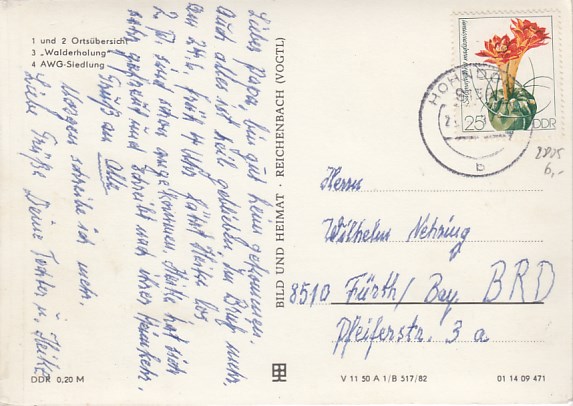 1 und 2 Ortsübersicht
3 „Walderholung"
4 AWG-Siedlung
Lieber Papa, bin gut heim gekommen.
Auch alles ist heil geblieben. Im Brief mehr.
Am 24.6. früh Uhr fährt Heike los
2 P. sind schon angekommen. Heike hat sich
sehr gefreut und schreibt nach ihrer Heimkehr.
Gruß an Alle
Morgen schreibe ich mehr.
Liebe Grüße Deine Tochter u. Heike
DDR 0,20 M
BILD UND HEIMAT · REICHENBACH (VOGTL)
25 DDR
b
2805
6,-
Herrn
Wilhelm Nehring
8510 Fürth/Bay. BRD
Pfeiferstr. 3 a
V 11 50 A 1/B 517/82
01 14 09 471